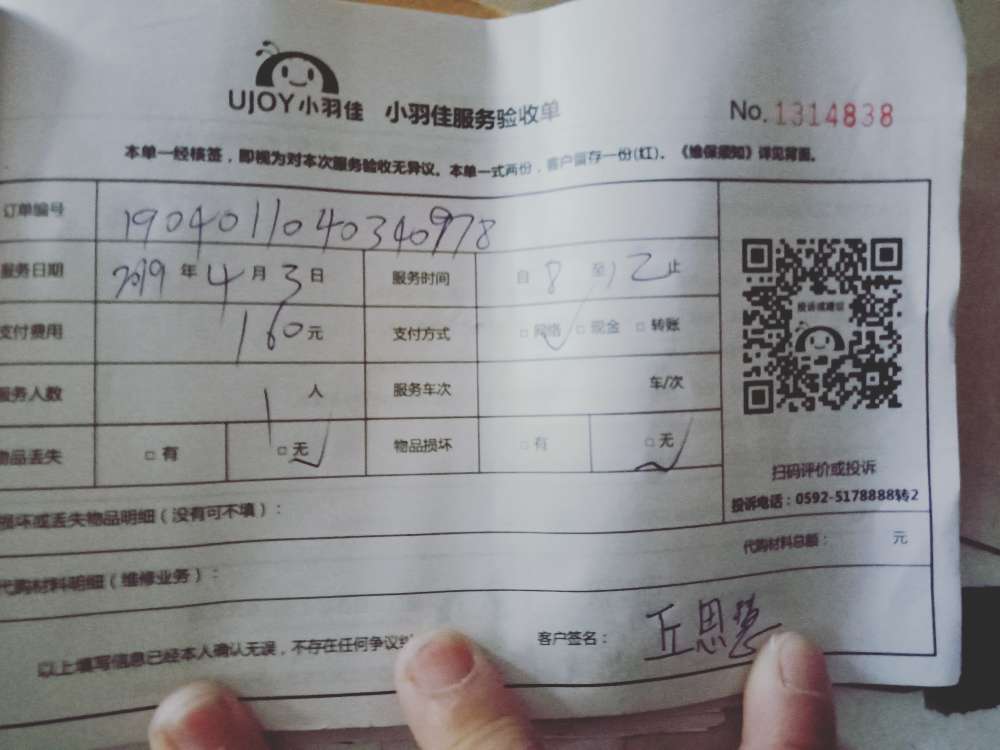 UJOY小羽佳 小羽佳服务验收单 No.1314838
本单一经核签，即视为对本次服务验收无异议。本单一式两份，客户留存一份(红)。《维保须知》详见背面。
订单编号 1904011040340978
服务日期 2019年4月3日 服务时间 自8至12止
支付费用 160元 支付方式 □网络 □现金 □转账
服务人数 1人 服务车次 车/次
物品丢失 □有 □无 物品损坏 □有 □无
投诉或建议
扫码评价或投诉
投诉电话：0592-5178888转2
损坏或丢失物品明细（没有可不填）：
代购材料总额： 元
代购材料明细（维修业务）：
以上填写信息已经本人确认无误，不存在任何争议
客户签名： 丘思慧